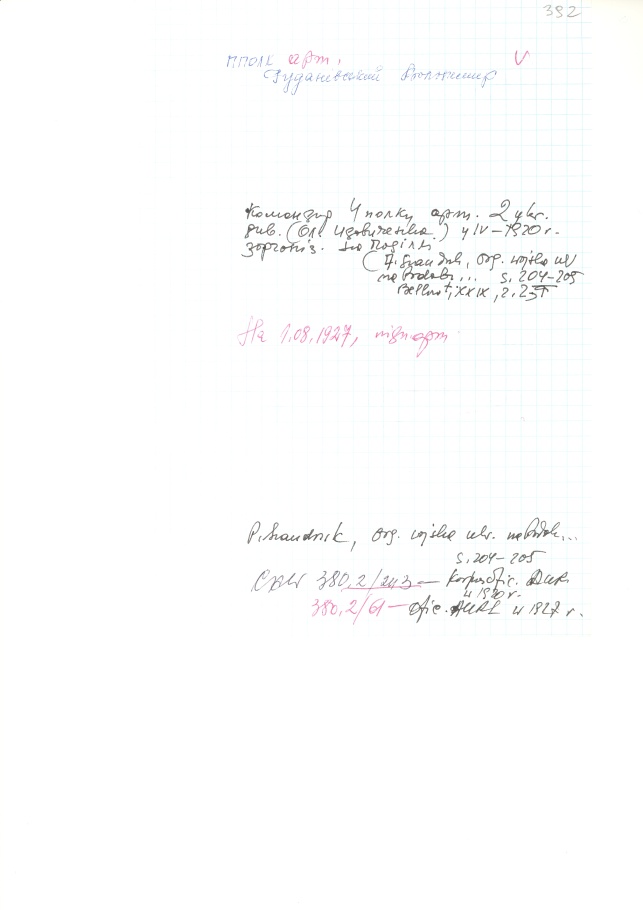 392
пполк арт. V
Гуданівський Володимир
Командир 4 полку арт. 2 укр.
див. (От. Удовиченка) у IV – 1920 р.
зорганіз. на Поділлі
org. wojska ukr
na Podolu... s. 204–205
Bellona, XXIX, z. 2
На 1.08.1927, підп арт
P. Szandruk, org. wojska ukr. na Podolu...
s. 204–205
CAW 380,2/243 — Korpus ofic. AURL
w 1920 r.
380,2/61 — ofic. AURL w 1927 r.